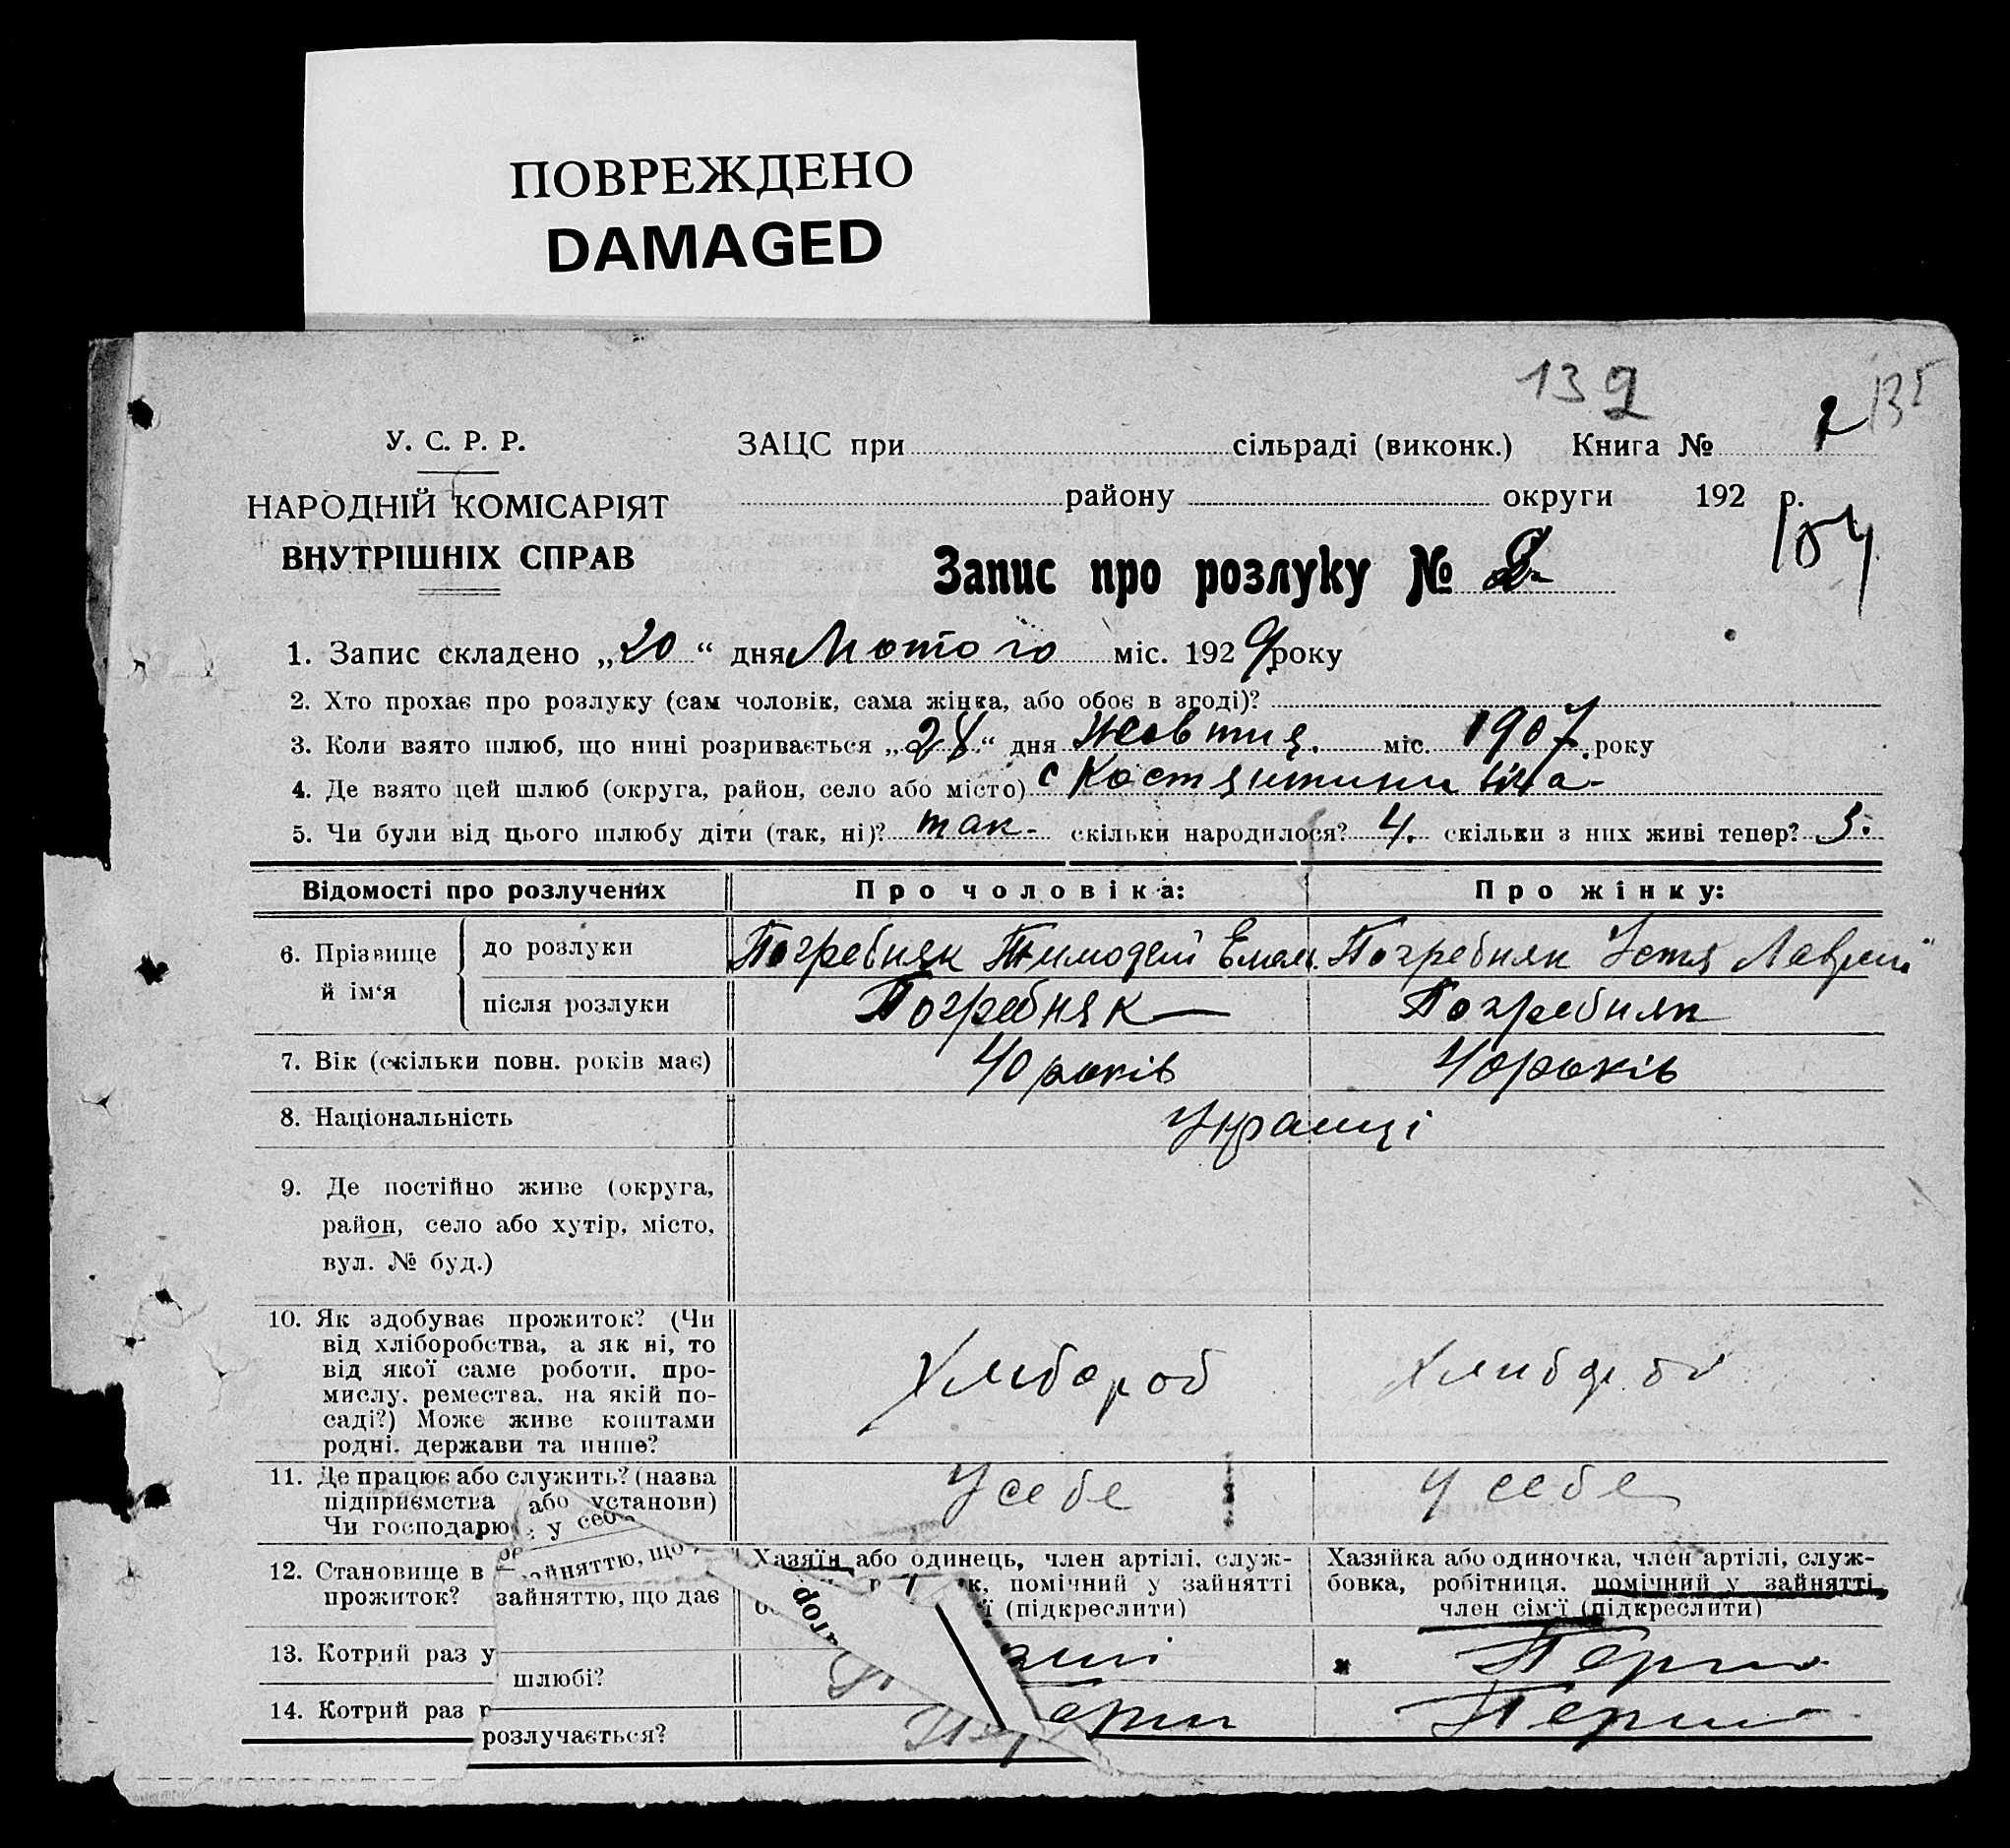 ПОВРЕЖДЕНО
DAMAGED
139
135
У. С. Р. Р.
ЗАЦС при сільраді (виконк.) Книга №
НАРОДНІЙ КОМІСАРІЯТ
району округи 192 р.
ВНУТРІШНІХ СПРАВ
104
Запис про розлуку № 2
1. Запис складено „20“ дня Лютого міс. 1929 року
2. Хто прохає про розлуку (сам чоловік, сама жінка, або обоє в згоді)?
3. Коли взято шлюб, що нині розривається „28“ дня Жовтня. міс. 1907 року
4. Де взято цей шлюб (округа, район, село або місто) с
5. Чи були від цього шлюбу діти (так, ні)? так- скільки народилося? 4. скільки з них живі тепер? 3.
Відомості про розлучених Про чоловіка: Про жінку:
6. Прізвище й ім‘я
до розлуки Погребняк Тимофей Емел. Погребняк Устя
після розлуки Погребняк Погребняк
7. Вік (скільки повн. років має) 40 років 40 років
8. Національність Українці
9. Де постійно живе (округа,
район, село або хутір, місто,
вул. № буд.)
10. Як здобуває прожиток? (Чи
від хліборобства, а як ні, то
від якої саме роботи, про-
мислу, ремества, на якій по-
саді?) Може живе коштами
родні, держави та инше?
Хлібороб Хлибороб
11. Де працює або служить? (назва
підприємства або установи)
Чи господарює у себе
У себе У себе
12. Становище в зайняттю, що дає
прожиток?
Хазяїн або одинець, член артілі, служ-
к, помічний у зайнятті
ї (підкреслити)
Хазяйка або одиночка, член артілі, служ-
бовка, робітниця, помічний у зайнятті,
член сім‘ї (підкреслити)
13. Котрий раз у шлюбі? Перш
14. Котрий раз розлучається? Перш